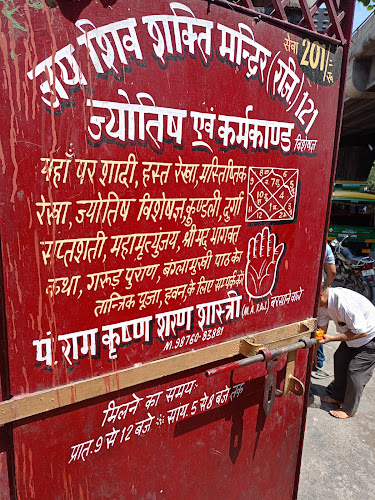 जय शिव शक्ति मन्दिर (रजि.) 121
सेवा 201/-रू
ज्योतिष एवं कर्मकाण्ड विशेषज्ञ
यहाँ पर शादी, हस्त रेखा, मस्तिष्तिक
रेखा, ज्योतिष विशेषज्ञ, कुण्डली, दुर्गा
सप्तशती, महामृत्युंजय, श्रीमद् भागवत
कथा, गरूड़ पुराण, बंग्लामुखी पाठ का
तान्त्रिक पूजा, हवन, के लिए सम्पर्क करें
पं. राम कृष्ण शरण शास्त्री (M.A.P.J.) बरसाने वाले
M.98760-83881
मिलने का समय:
प्रात. 9 से 12 बजे * सायं. 5 से 8 बजे तक